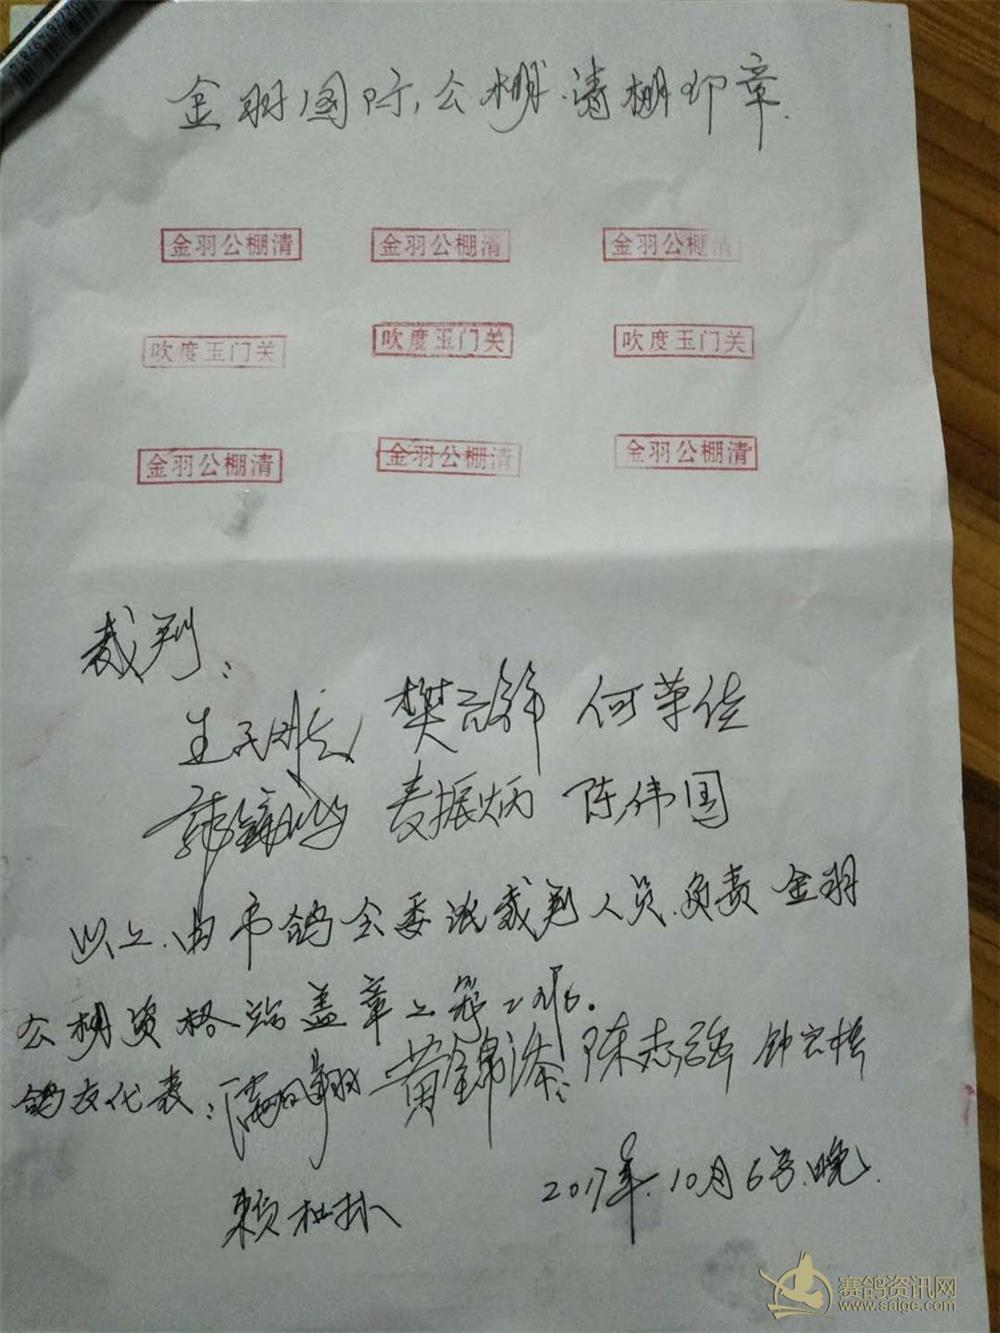 金羽国际公棚清棚印章.
金羽公棚清 金羽公棚清 金羽公棚清
吹度玉门关 吹度玉门关 吹度玉门关
金羽公棚清 金羽公棚清 金羽公棚清
裁判:
樊 何荣佳
麦振炳 陈伟国
以上.由市鸽会委派裁判人员.负责金羽
公棚资格站盖章工
鸽友代表: 黄锦 陈志强 钟
赖 2017年.10月6号.晚.
赛鸽资讯网
www.saige.com